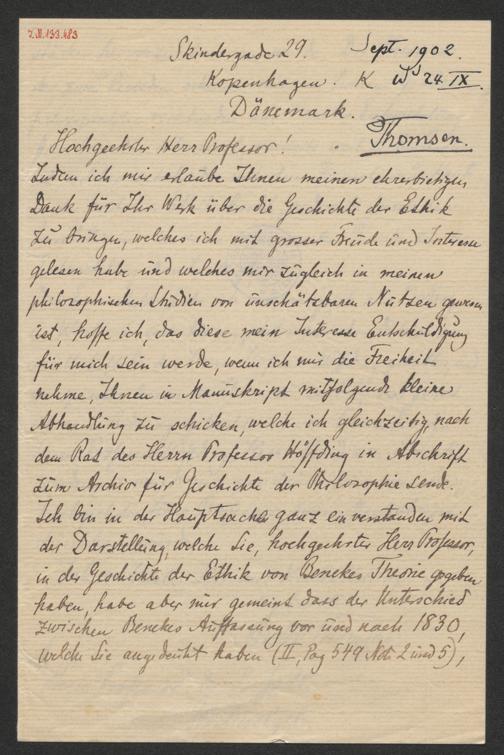 Z.N. 133.483
Skindergade 29. Sept. 1902.
Kopenhagen. K 24. IX.
Dänemark.
Thomsen.
Hochgeehrter Herr Professor!
Indem ich mir erlaube Ihnen meinen ehrerbietigen
Dank für Ihr Werk über die Geschichte der Ethik
zu bringen, welches ich mit grosser Freude und Interesse
gelesen habe und welches mir zugleich in meinen
philosophischen Studien von unschätzbaren Nutzen gewesen
ist, hoffe ich, das diese mein Interesse Entschuldigung
für mich sein werde, wenn ich mir die Freiheit
nehme, Ihnen in Manuskript mitfolgende kleine
Abhandlung zu schicken, welche ich gleichzeitig nach
dem Rat des Herrn Professor Höffding in Abschrift
zum Archiv für Geschichte der Philosophie sende.
Ich bin in der Hauptsache ganz einverstanden mit
der Darstellung, welche Sie, hochgeehrter Herr Professor,
in der Geschichte der Ethik von Benekes Theorie gegeben
haben, habe aber nur gemeint dass der Unterschied
zwischen Benekes Auffassung vor und nach 1830,
welche Sie angedeutet haben (II, Pag 549 Note 2 und 5),